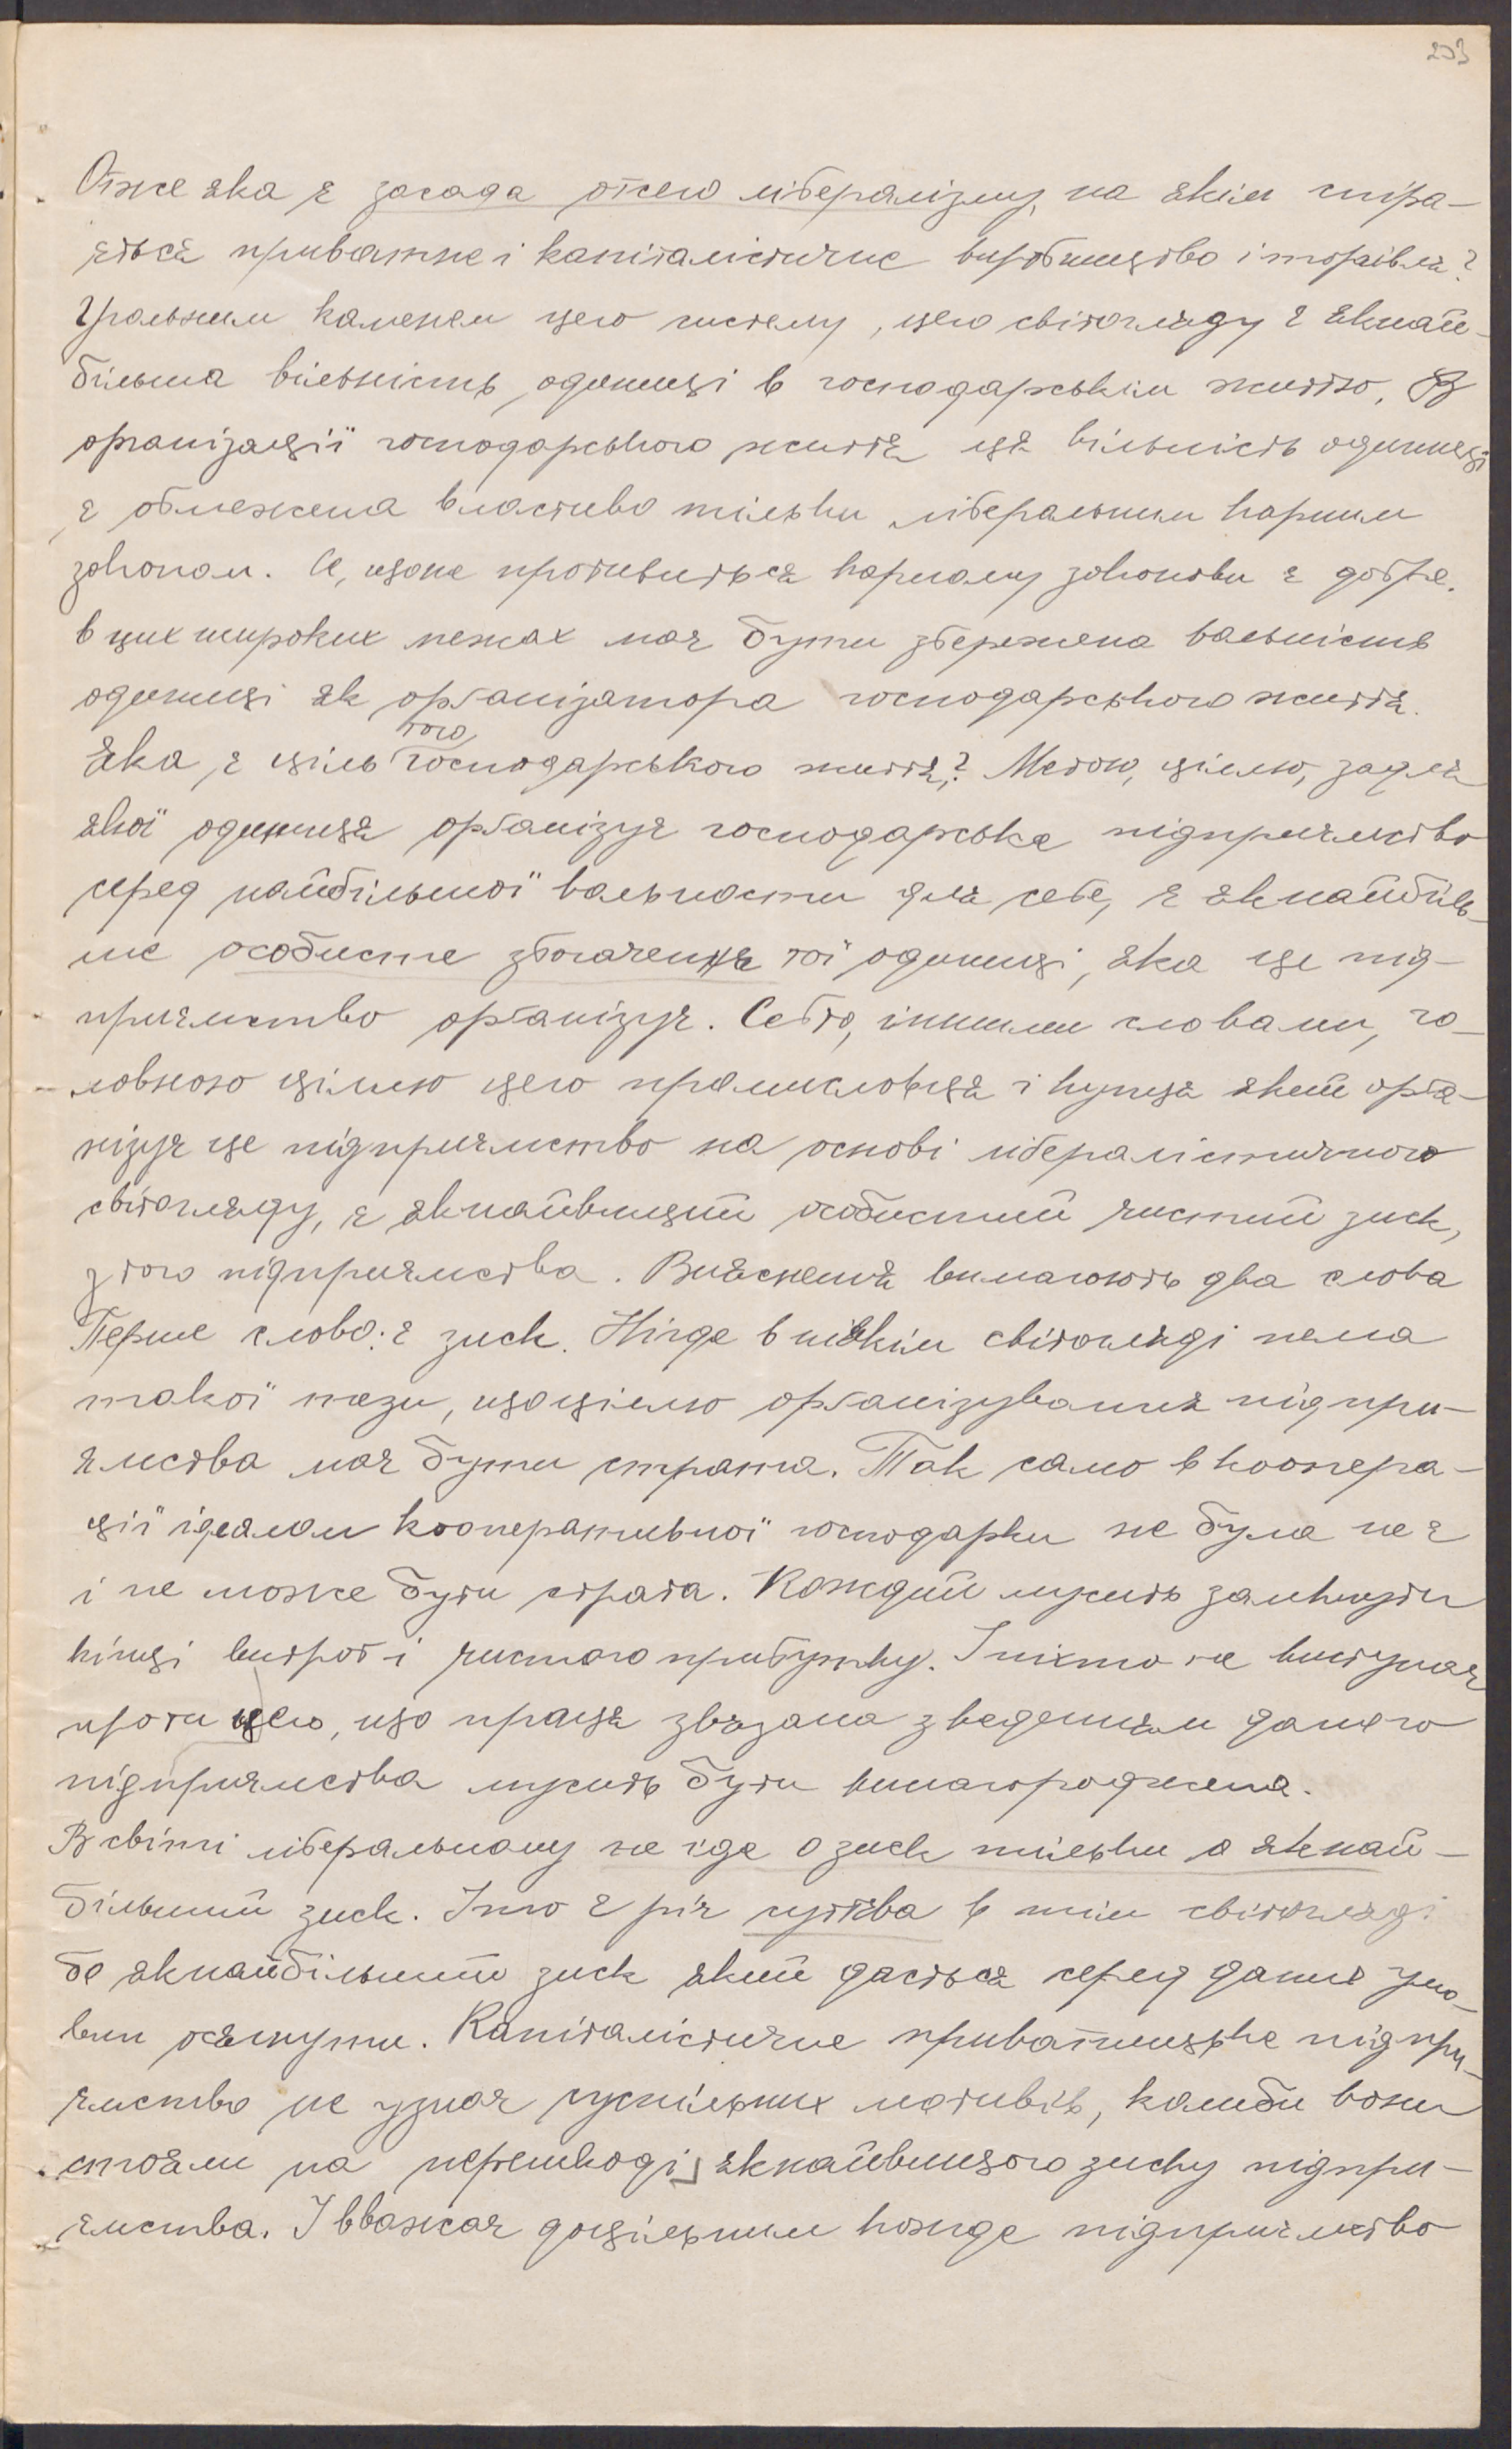 203
Отже яка є засада отсего лібералізму, на якім опіра-
ється приватне і капіталістичне виробництво і торгівля?
Гральним каменем цего систему, цего світогляду є якнай-
більша вільність одиниці в господарськім життю. В
організації господарського життя ця вільність одиниці
є обмежена властиво тільки ліберальним карним
законом. Се, що не противиться карному законови є добре.
в цих широких межах має бути збережена вольність
одиниці як організатора господарського життя.
Яка є ціль того господарського життя? Метою, цілею, задля
якої одиниця організує господарське підприємство
серед найбільшої вольности для себе, є якнайбіль-
ше особисте збагачення тої одиниці, яка це під-
приємство організує. Себто, іншими словами, го-
ловною цілею цего промисловця і купця який орга-
нізує це підприємство на основі лібералістичного
світогляду, є якнайвищий особистий чистий зиск,
з того підприємства. Виясненя вимагають два слова
Перше слово: є зиск. Нігде в ніякім світогляді нема
такої тези, що цілею організування підпри-
ємства має бути страта. Так само в коопера-
ції ідеалом кооперативної господарки не була не є
і не може бути страта. Кождий мусить замкнути
кінці витрат і чистого прибутку. І ніхто не виступає
проти цего, що праця звязана з веденням даного
підприємства мусить бути винагороджена.
В світі ліберальному не іде о зиск тільки а якнай-
більший зиск. І то є річ суттєва в тім світогляді
бо якнайбільший зиск який дасться серед даних умо-
вин осягнути. Капіталістичне приватницьке підпри-
ємство не узнає суспільних мотивів, колиби вони
стояли на перешкоді якнайвищого зиску підпри-
ємства. І вважає доцільним кожде підприємство